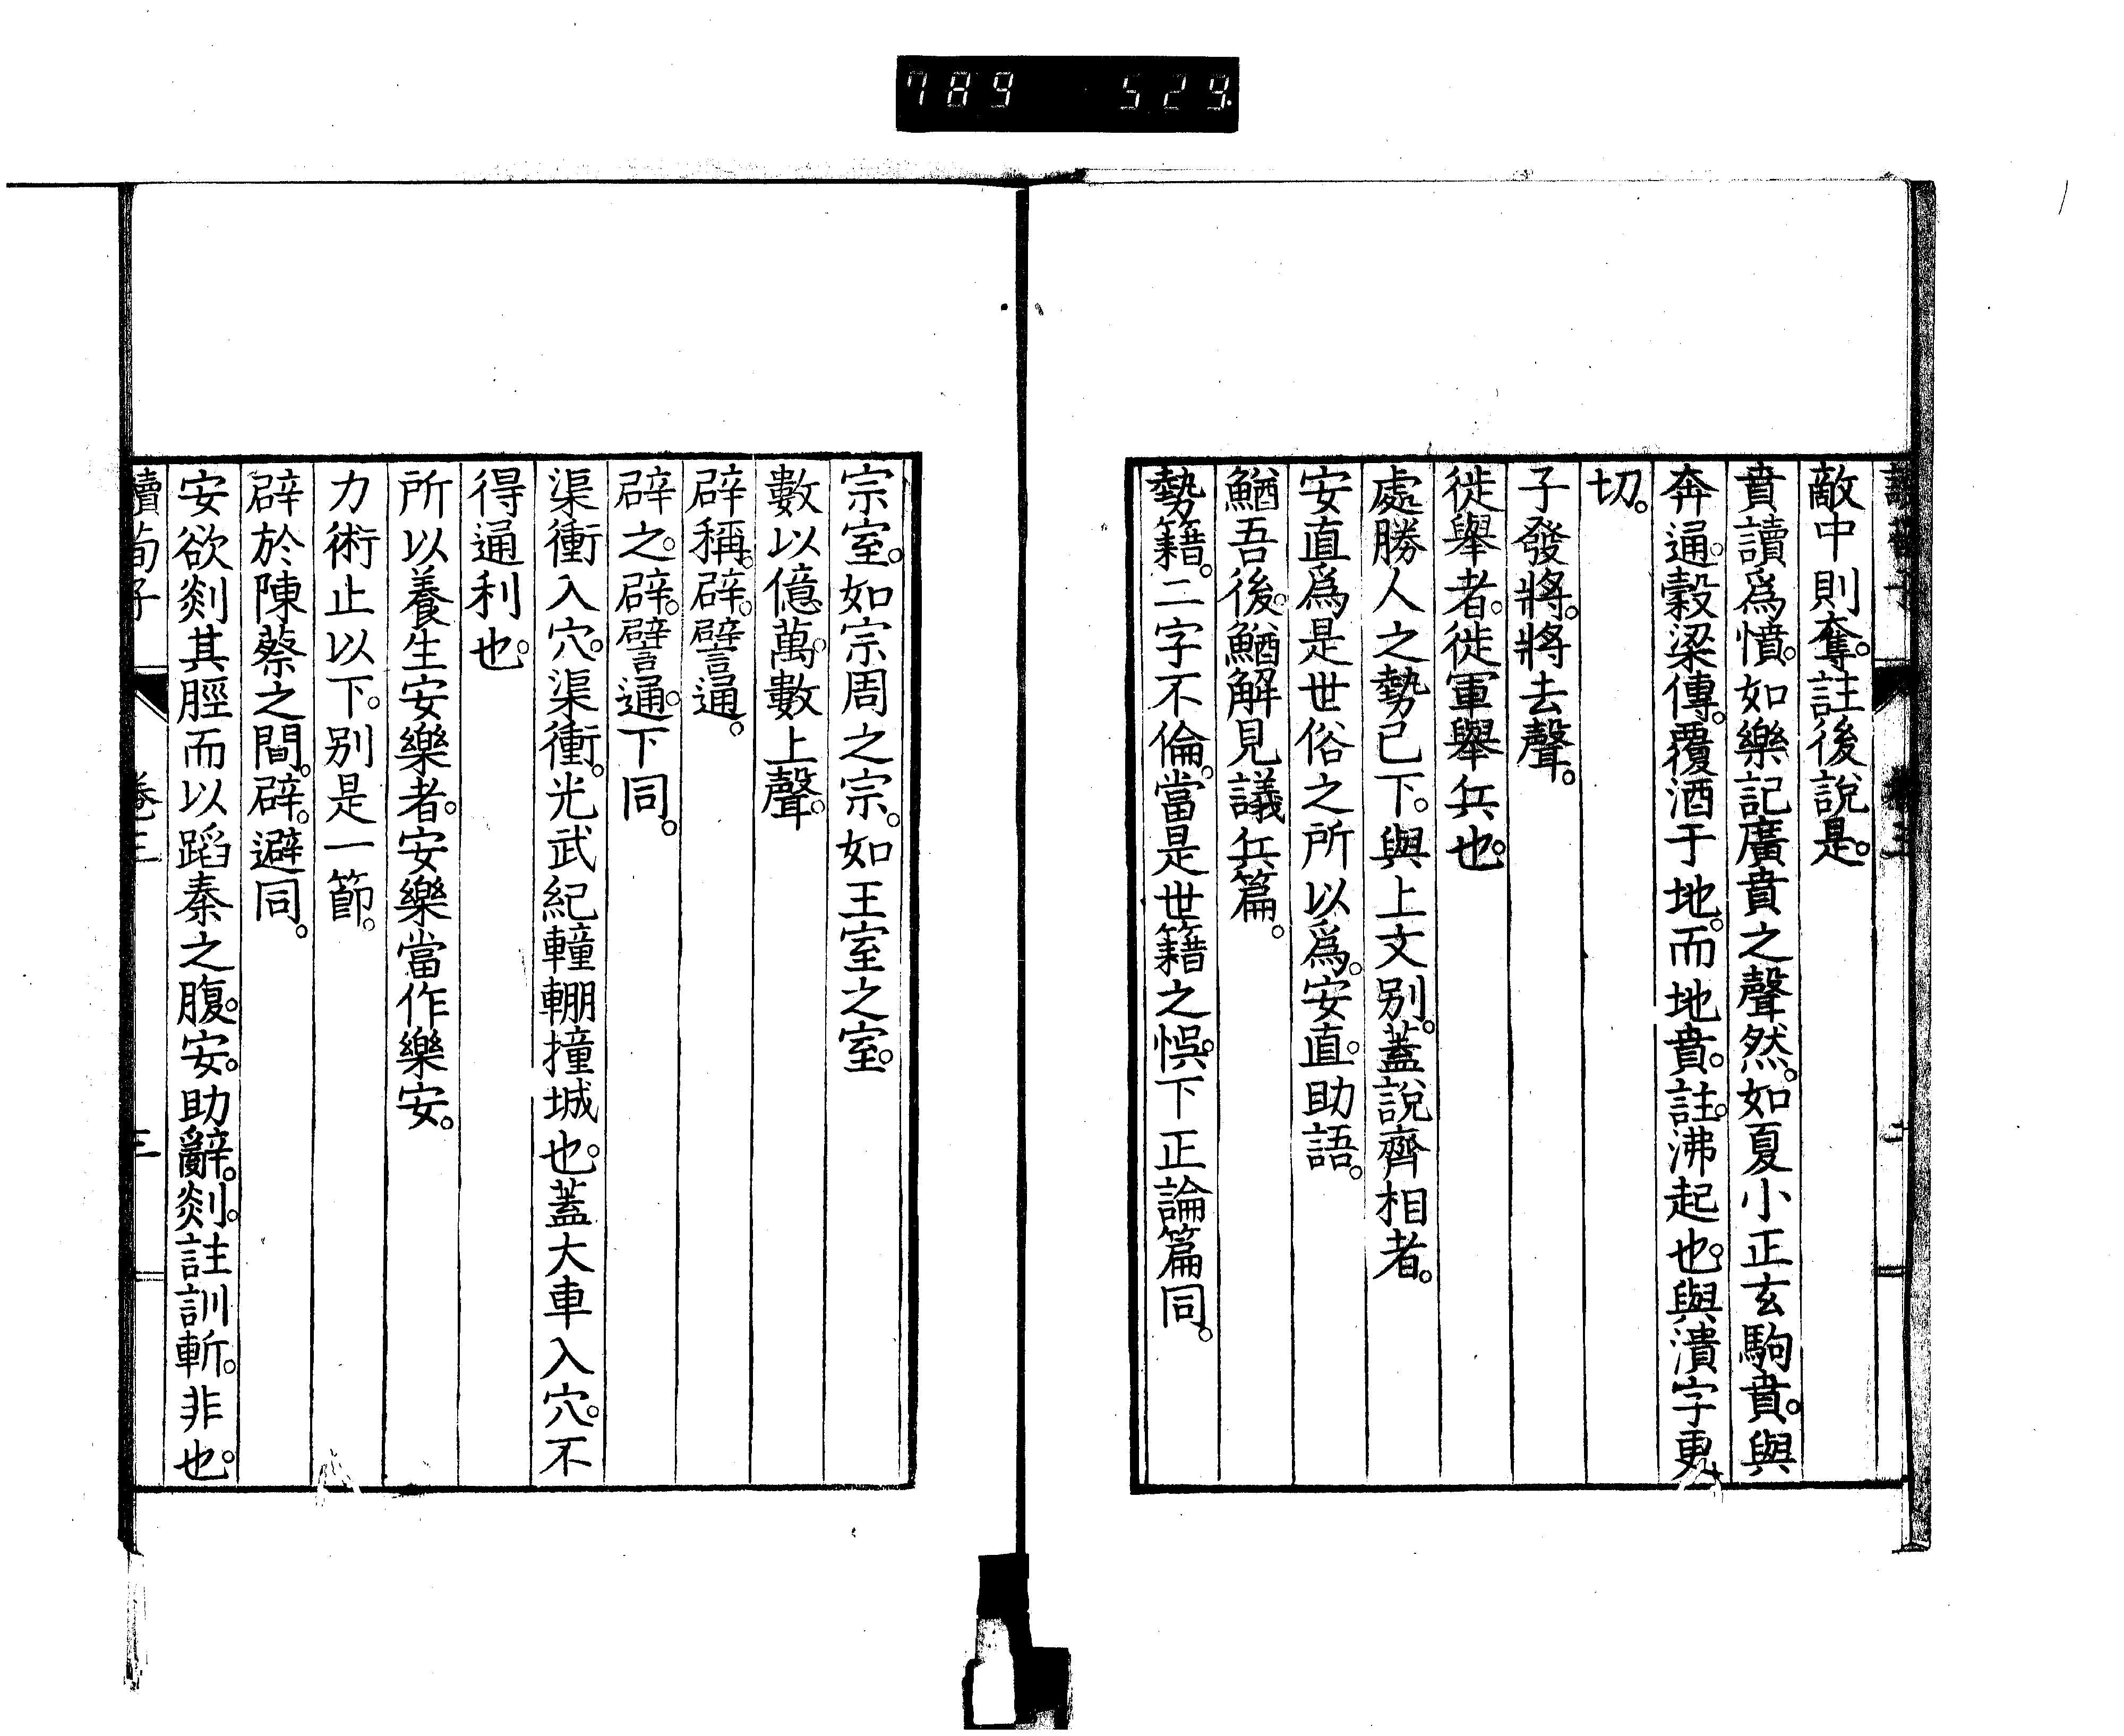 789 529
敵中則奪。註後說是。
賁讀爲憤。如樂記廣賁之聲然。如夏小正玄駒賁。與
奔通。穀梁傳。覆酒于地。而地賁。註。沸起也。與潰字更
切。
子發將。將去聲。
徙舉者。徙軍舉兵也。
處勝人之勢已下。與上文别。蓋說齊相者。
安直爲是世俗之所以爲。安直。助語。
鰌吾後。鰌解見議兵篇。
勢籍。二字不倫。當是世籍之悞。下正論篇同。
宗室。如宗周之宗。如王室之室。
數以億萬。數上聲。
辟稱。辟。譬通。
辟之。辟。譬通。下同。
渠衝入穴。渠衝。光武紀轒輣撞城也。蓋大車入穴。不
得通利也。
所以養生安樂者。安樂當作樂安。
力術止以下。别是一節。
辟於陳蔡之間。辟。避同。
安欲剡其脛而以蹈秦之腹。安。助辭。剡。註訓斬。非也。
讀荀子 卷三 三